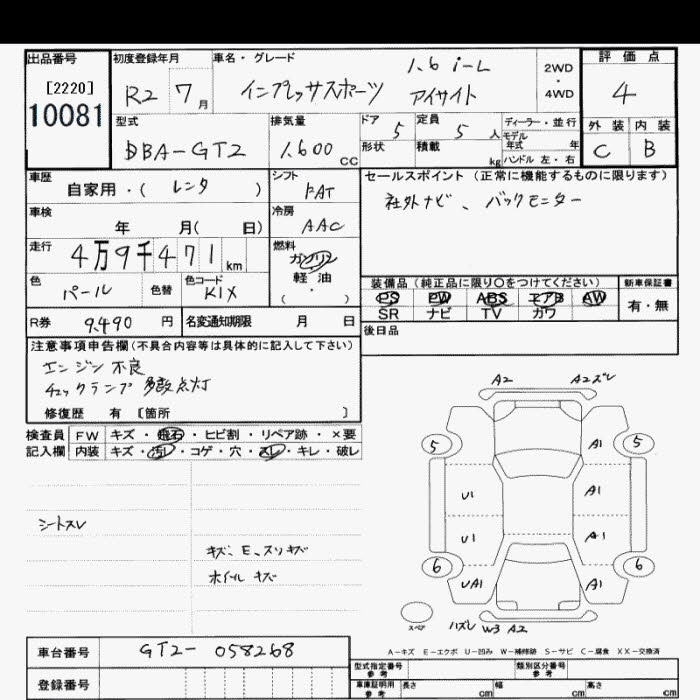 出品番号 初度登録年月 車名・グレード 1.6 i-L 2WD ・ 4WD 評価点
[2220] R2 7月 インプレッサスポーツ アイサイト 4
10081
型式 排気量 ドア 5 定員 5人 ディーラー・並行 外装 内装
DBA-GT2 1,600 CC 形状 積載 kg モデル年式 年 C B
ハンドル 左・右
車歴 自家用・(レンタ) シフト FAT セールスポイント (正常に機能するものに限ります)
車検 年 月( 日) 冷房 AAC 社外ナビ、バックモニター
走行 4万9千471km 燃料 ガソリン
軽油
( ・ )
色 パール 色替 色コード K1X 装備品 (純正品に限り○をつけてください) 新車保証書
PS PW ABS エアB AW 有・無
SR ナビ TV カワ
R券 9,490 円 名変通知期限 月 日 後日品
注意事項申告欄(不具合内容等は具体的に記入して下さい)
エンジン不良
チェックランプ 多数点灯
修復歴 有 [箇所 ]
検査員 FW キズ・飛石・ヒビ割・リペア跡・×要
記入欄 内装 キズ・汚レ・コゲ・穴・スレ・キレ・破レ
シートスレ
キズ、E、スリキズ
ホイルキズ
A2 A2ズレ
5 A1 5
U1 A1
U1 A1
6 UA1 A1 6
スペア ハズレ W3 A2
A-キズ E-エクボ U-凹み W-補修跡 S-サビ C-腐食 XX-交換済
車台番号 GT2-058268 型式指定番号 参考 類別区分番号 参考
登録番号 車庫証明用 参考 長さ cm 幅 cm 高さ cm